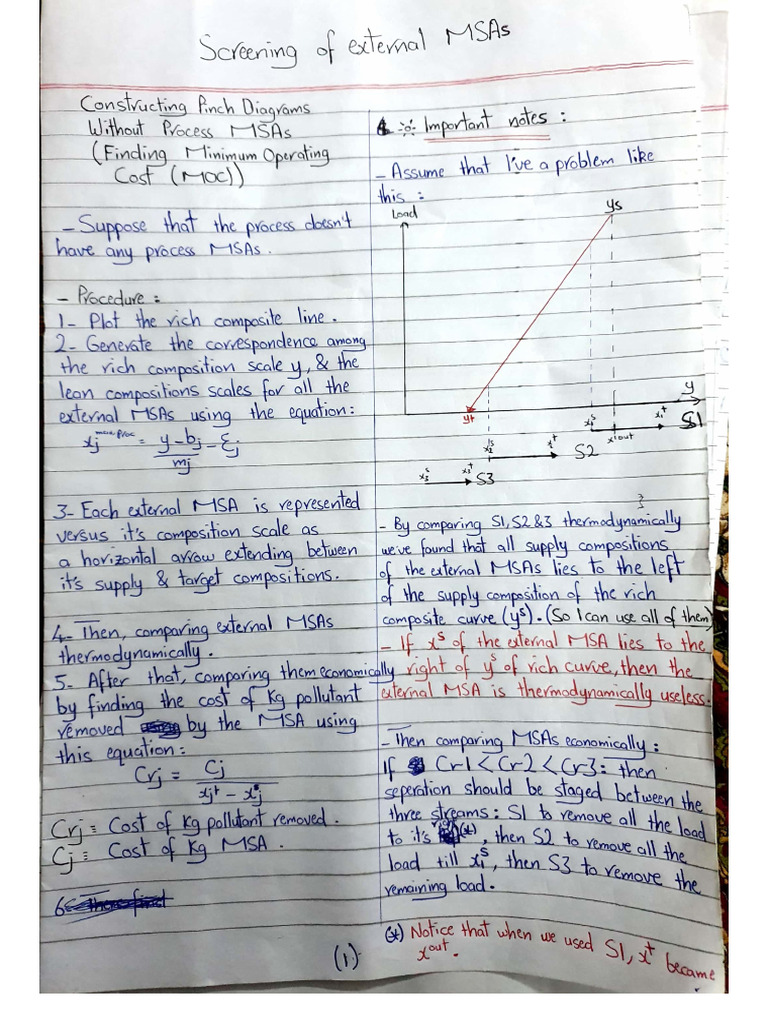 Screening of external MSAs
Constructing Pinch Diagrams
Without Process MSAs
(Finding Minimum Operating
Cost (MOC))
- Suppose that the process doesn't
have any process MSAs.
- Procedure:
1- Plot the rich composite line.
2- Generate the correspondence among
the rich composition scale y, & the
lean compositions scales for all the
external MSAs using the equation:
xj = y-bj/mj - Ɛj
3- Each external MSA is represented
versus it's composition scale as
a horizontal arrow extending between
it's supply & target compositions.
4- Then, comparing external MSAs
thermodynamically.
5. After that, comparing them economically
by finding the cost of Kg pollutant
removed by the MSA using
this equation:
Crj = Cj / xjt - xjs
Crj = Cost of Kg pollutant removed.
Cj = Cost of Kg MSA.
(1)
Important notes:
- Assume that I've a problem like
this:
Load
ys
y
yt
x1s x1t S1
x1out
x2s xt S2
x3s x3t S3
- By comparing S1, S2 & 3 thermodynamically
we've found that all supply compositions
of the external MSAs lies to the left
of the supply composition of the rich
composite curve (ys). (So I can use all of them)
- If xs of the external MSA lies to the
right of ys of rich curve, then the
external MSA is thermodynamically useless.
- Then comparing MSAs economically:
If Cr1 < Cr2 < Cr3: then
seperation should be staged between the
three streams: S1 to remove all the load
to it's right(*), then S2 to remove all the
load till x1s, then S3 to remove the
remaining load.
(*) Notice that when we used S1, xt became
xout.